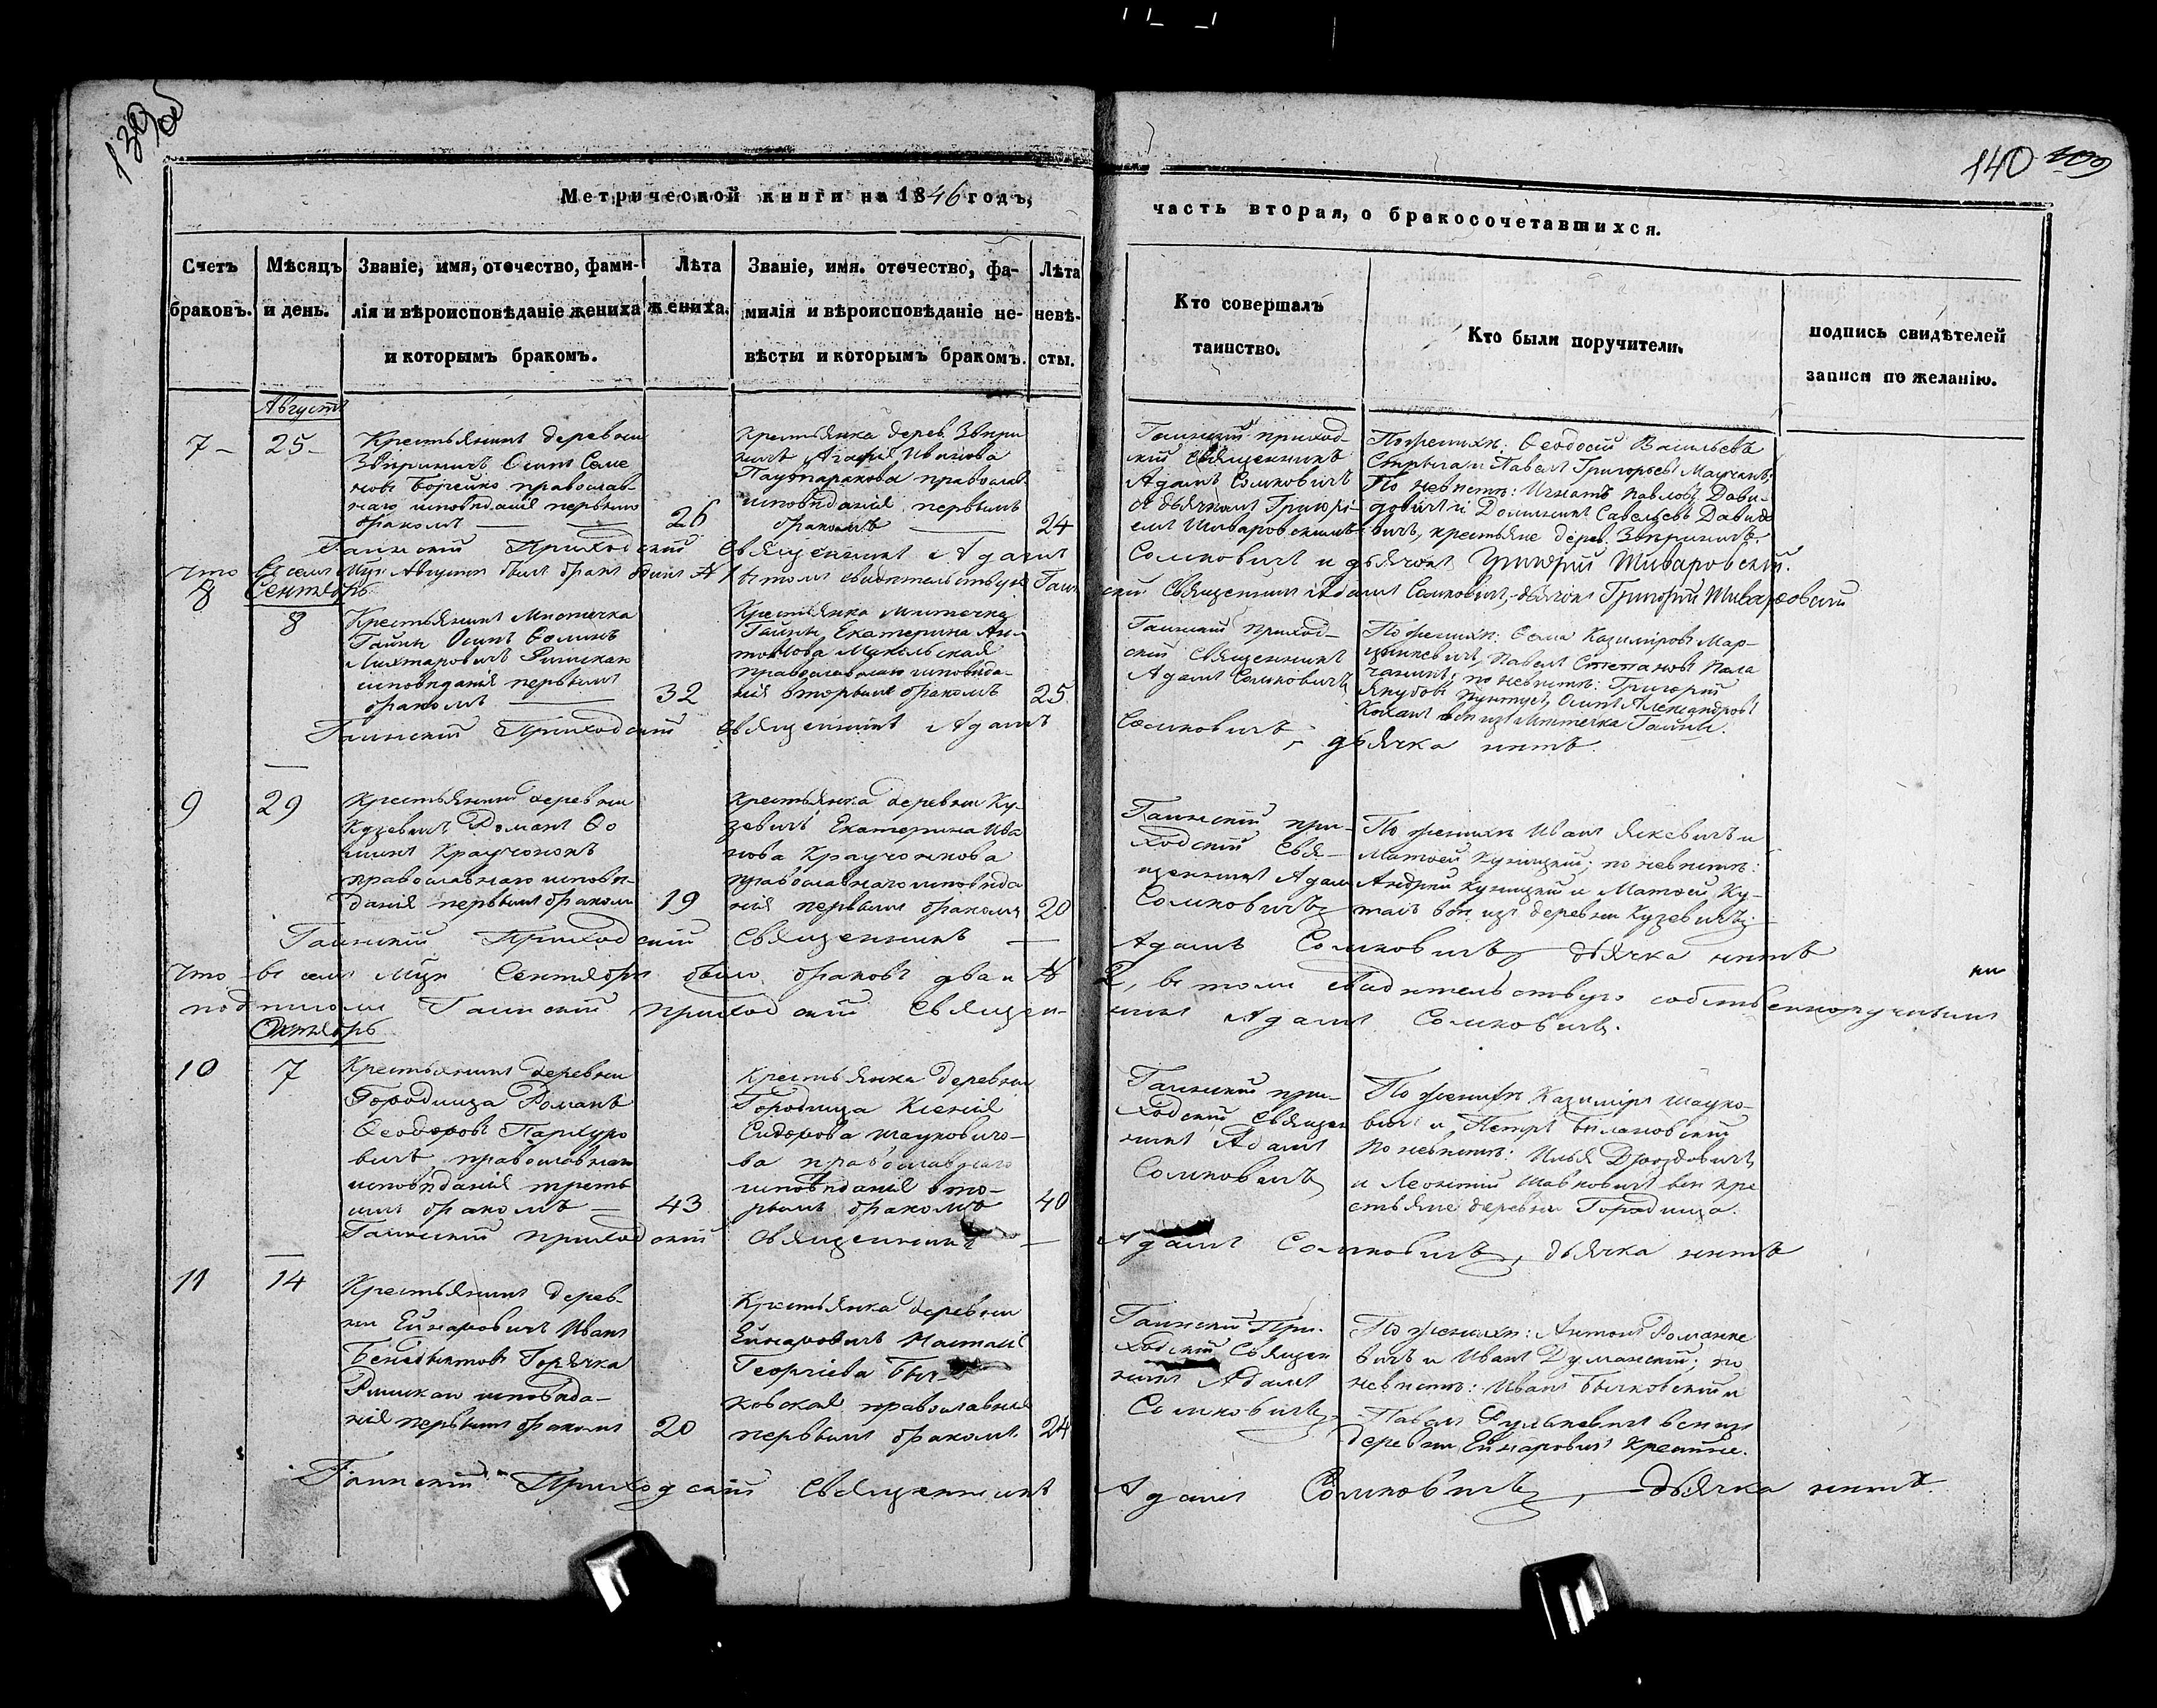 139об
140 109
Метрической книги на 1846 годъ,
часть вторая, о бракосочетавшихся.
Счетъ браковъ.
Мѣсяцъ и день.
Званіе, имя, отечество, фами-
лія и вѣроисповѣданіе жениха
и которымъ бракомъ.
Лѣта
жениха.
Званіе, имя. отечество, фа-
милія и вѣроисповѣданіе не-
вѣсты и которымъ бракомъ.
Лѣта
невѣ-
сты.
Кто совершалъ
таинство.
Кто были поручители.
подпись свидѣтелей
записи по желанію.
Августъ
7 - 25 -
Крестьянинъ деревни
Звѣриничъ Осипъ Семе
новъ Борейко православ-
наго исповѣданія первымъ
бракомъ
26
Крестьянка дерев. Звѣри
ничъ Агафія Иванова
православ.
исповѣданія первымъ
бракомъ
24
Гаинскій приход-
скій священникъ
Адамъ Сомковичъ
съ дьячкомъ Григорі-
емъ Шиваровскимъ
По женихѣ: Ѳеодосій Васильевъ
Стрыга и Павелъ Григорьевъ
По невѣстѣ: Игнатъ Павловъ Дави-
довичъ и Доминикъ Савельевъ Давидо
вичъ, крестьяне дерев. Звѣриничъ.
Гаинскій Приходскій Священникъ Адамъ
Сомковичъ и дьячокъ Григорій Шиваровскій.
Что въ семъ Мцѣ Августѣ былъ бракъ одинъ № 1 въ томъ свидѣтельствую Гаин
скій Священникъ Адамъ Сомковичъ, дьячокъ Григорій Шиваровскій
Сентябрь
8 8
Крестьянинъ Мѣстечка
Гайны Осипъ Ѳоминъ
Лихтаровичъ Римскаго
исповѣданія первымъ
бракомъ
32
Крестьянка Мѣстечка
Гайны, Екатерина Ан-
тонова
православнаго исповѣда-
нія вторымъ бракомъ
25
Гаинскій приход-
скій Священникъ
Адамъ Сомковичъ
По женихѣ: Ѳома Казиміровъ Мар-
цынкевичъ, Павелъ Степановъ
по невѣстѣ: Григорій
Якубовъ Осипъ Александровъ
всѣ изъ Мѣстечка Гайны.
Гаинскій Приходскій Священникъ Адамъ
Сомковичъ, дьячка нѣтъ.
9 29
Крестьянинъ деревни
Кузевичъ Романъ Ѳо
минъ Краучонокъ
православнаго исповѣ-
данія первымъ бракомъ
19
Крестьянка деревни Ку-
зевичъ Екатерина Ива
нова Краучонкова
православнаго исповѣда
нія первымъ бракомъ
20
Гаинскій при-
ходскій Свя-
щенникъ Адамъ
Сомковичъ
По женихѣ Иванъ Яскевичъ и
Матѳей Куницкій; по невѣстѣ:
Андрей Куницкій и Матѳей Ку-
всѣ изъ деревни Кузевичъ.
Гаинскій Приходскій Священникъ
Адамъ Сомковичъ, дьячка нѣтъ
Что въ семъ Мцѣ Сентябрѣ было браковъ два и №
2, въ томъ свидѣтельствую собственноручнымъ
подписомъ Гаинскій приходскій Священ-
никъ Адамъ Сомковичъ.
Октябрь
10 7
Крестьянинъ деревни
Городища Романъ
Ѳеодоровъ Пархуро
вичъ православнаго
исповѣданія треть
имъ бракомъ
43
Крестьянка деревни
Городища Ксенія
Сидорова Шаукович-
ва православнаго
исповѣданія вто-
рымъ бракомъ
40
Гаинскій при-
ходскій Священ
никъ Адамъ
Сомковичъ
По женихѣ Казиміръ Шауко-
вичъ и Петръ Билановскій
По невѣстѣ: Илья Дроздовичъ
и Леонтій Шавковичъ всѣ кре
стьяне деревни Городища.
Гаинскій приходскій Священникъ
Адамъ Сомковичъ, дьячка нѣтъ
11 14
Крестьянинъ дерев-
ни Ейнаровичъ Иванъ
Бенедыктовъ Горячка
Римскаго исповѣда-
нія первымъ бракомъ
20
Крестьянка деревни
Ейнаровичъ Наталія
Георгіева Быч-
ковская православная
первымъ бракомъ
24
Гаинскій При-
ходскій Священ
никъ Адамъ
Сомковичъ
По женихѣ: Антонъ Романке
вичъ и Иванъ Думанскій; по
невѣстѣ: Иванъ Бычковскій и
Павелъ всѣ изъ
деревни Ейнаровичъ крестьяне.
Гаинскій Приходскій Священникъ
Адамъ Сомковичъ, дьячка нѣтъ.